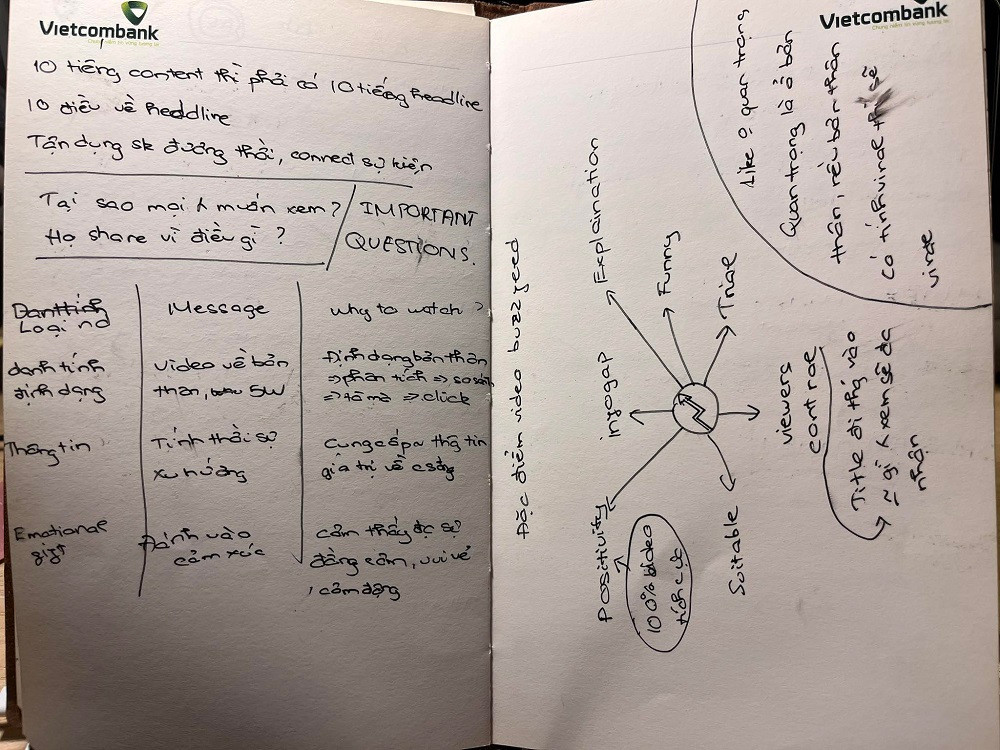 Vietcombank
Chung niềm tin vững tương lai
10 tiếng content thì phải có 10 tiếng headline
10 điều về headline
Tận dụng sk đương thời, connect sự kiện
Tại sao mọi k muốn xem?
Họ share vì điều gì?
IMPORTANT
QUESTIONS.
Danh tính
Loại nd
Message
Why to watch?
danh tính
định dạng
video về bản
thân, SW
Định dạng bản thân
=> phân tích => so sánh
=> tò mò => click
Thông tin
Tính thời sự
xu hướng
Cung cấp thông tin
giá trị về c sống
Emotional
gift
Đánh vào
cảm xúc
cảm thấy đc sự
đồng cảm, vui vẻ
, cảm động
Vietcombank
Chung niềm tin vững tương lai
Like ọ quan trọng
Quan trọng là ở bản
thân, nếu bản thân
có tính viral thì sẽ
viral
Đặc điểm video buzzfeed
Explaination
Funny
Trial
viewers
control
Title đi thẳng vào
~ gì k xem sẽ đc
nhận
Suitable
Positivity
100% video
tích cực